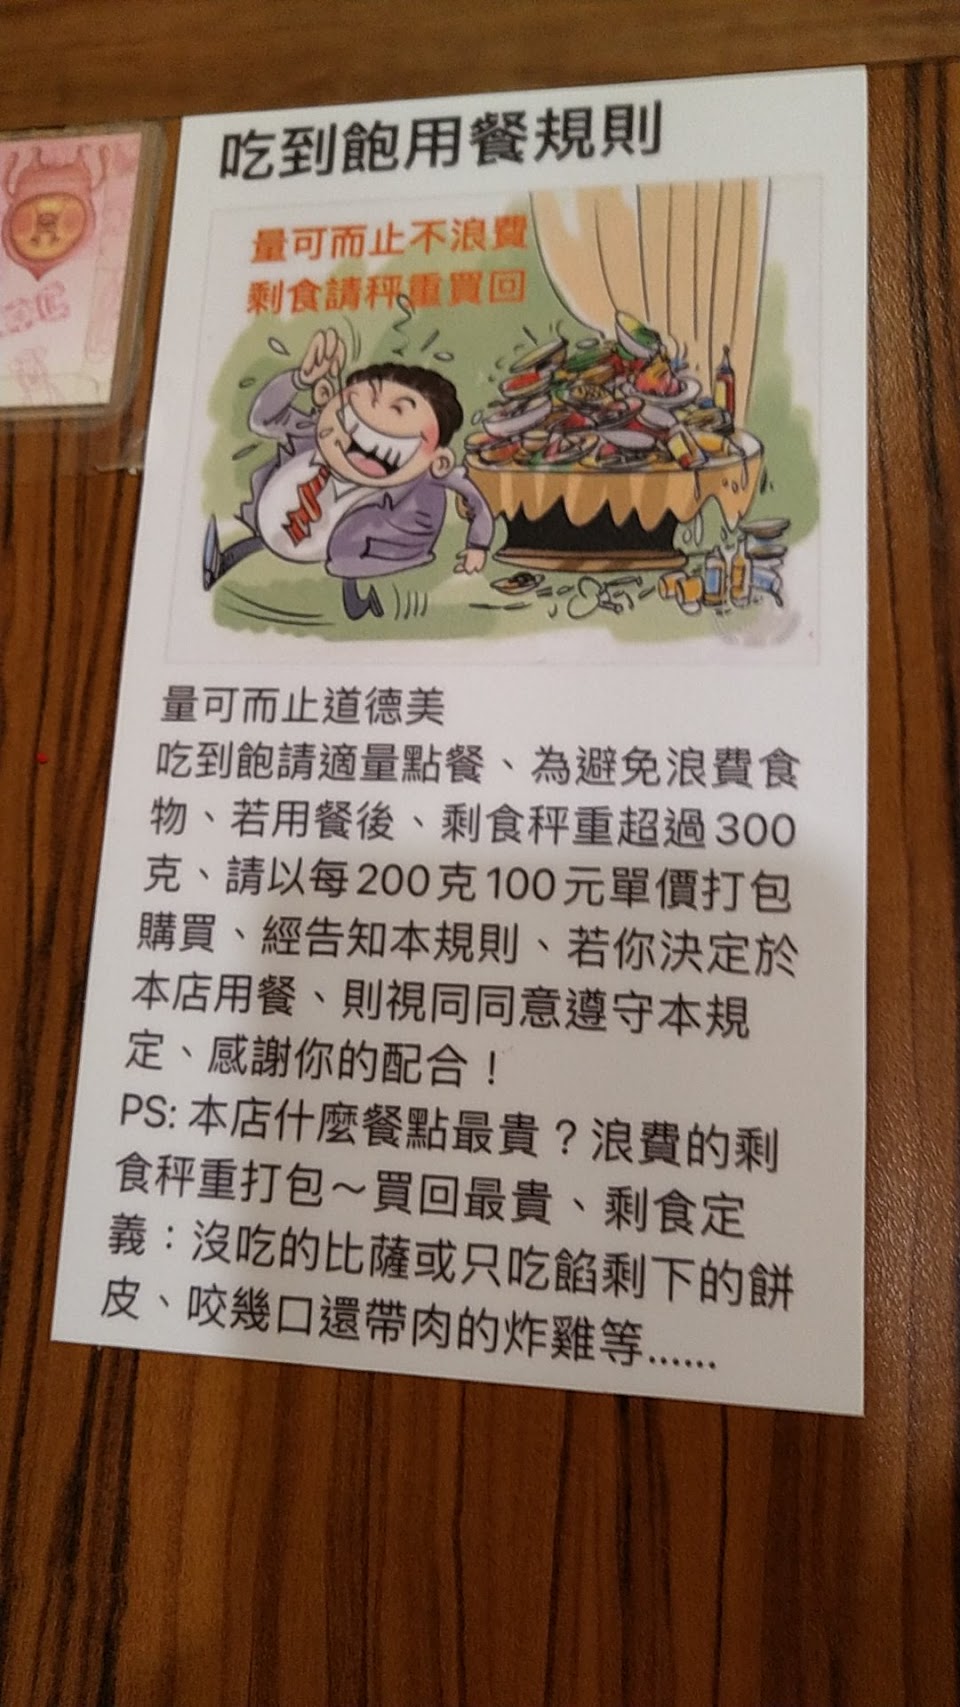 吃到飽用餐規則
量可而止不浪費
剩食請秤重買回
量可而止道德美
吃到飽請適量點餐、為避免浪費食
物、若用餐後、剩食秤重超過300
克、請以每200克100元單價打包
購買、經告知本規則、若你決定於
本店用餐、則視同同意遵守本規
定、感謝你的配合！
PS: 本店什麼餐點最貴？浪費的剩
食秤重打包～買回最貴、剩食定
義：沒吃的比薩或只吃餡剩下的餅
皮、咬幾口還帶肉的炸雞等......